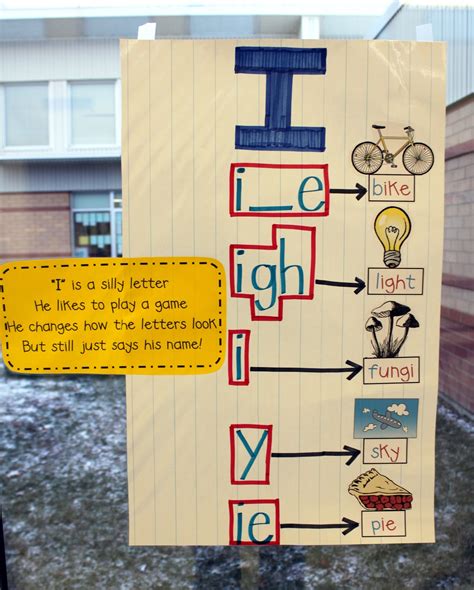 I
i_e
bike
igh
light
"I" is a silly letter
He likes to play a game
He changes how the letters look
But still just says his name!
i
fungi
y
sky
ie
pie